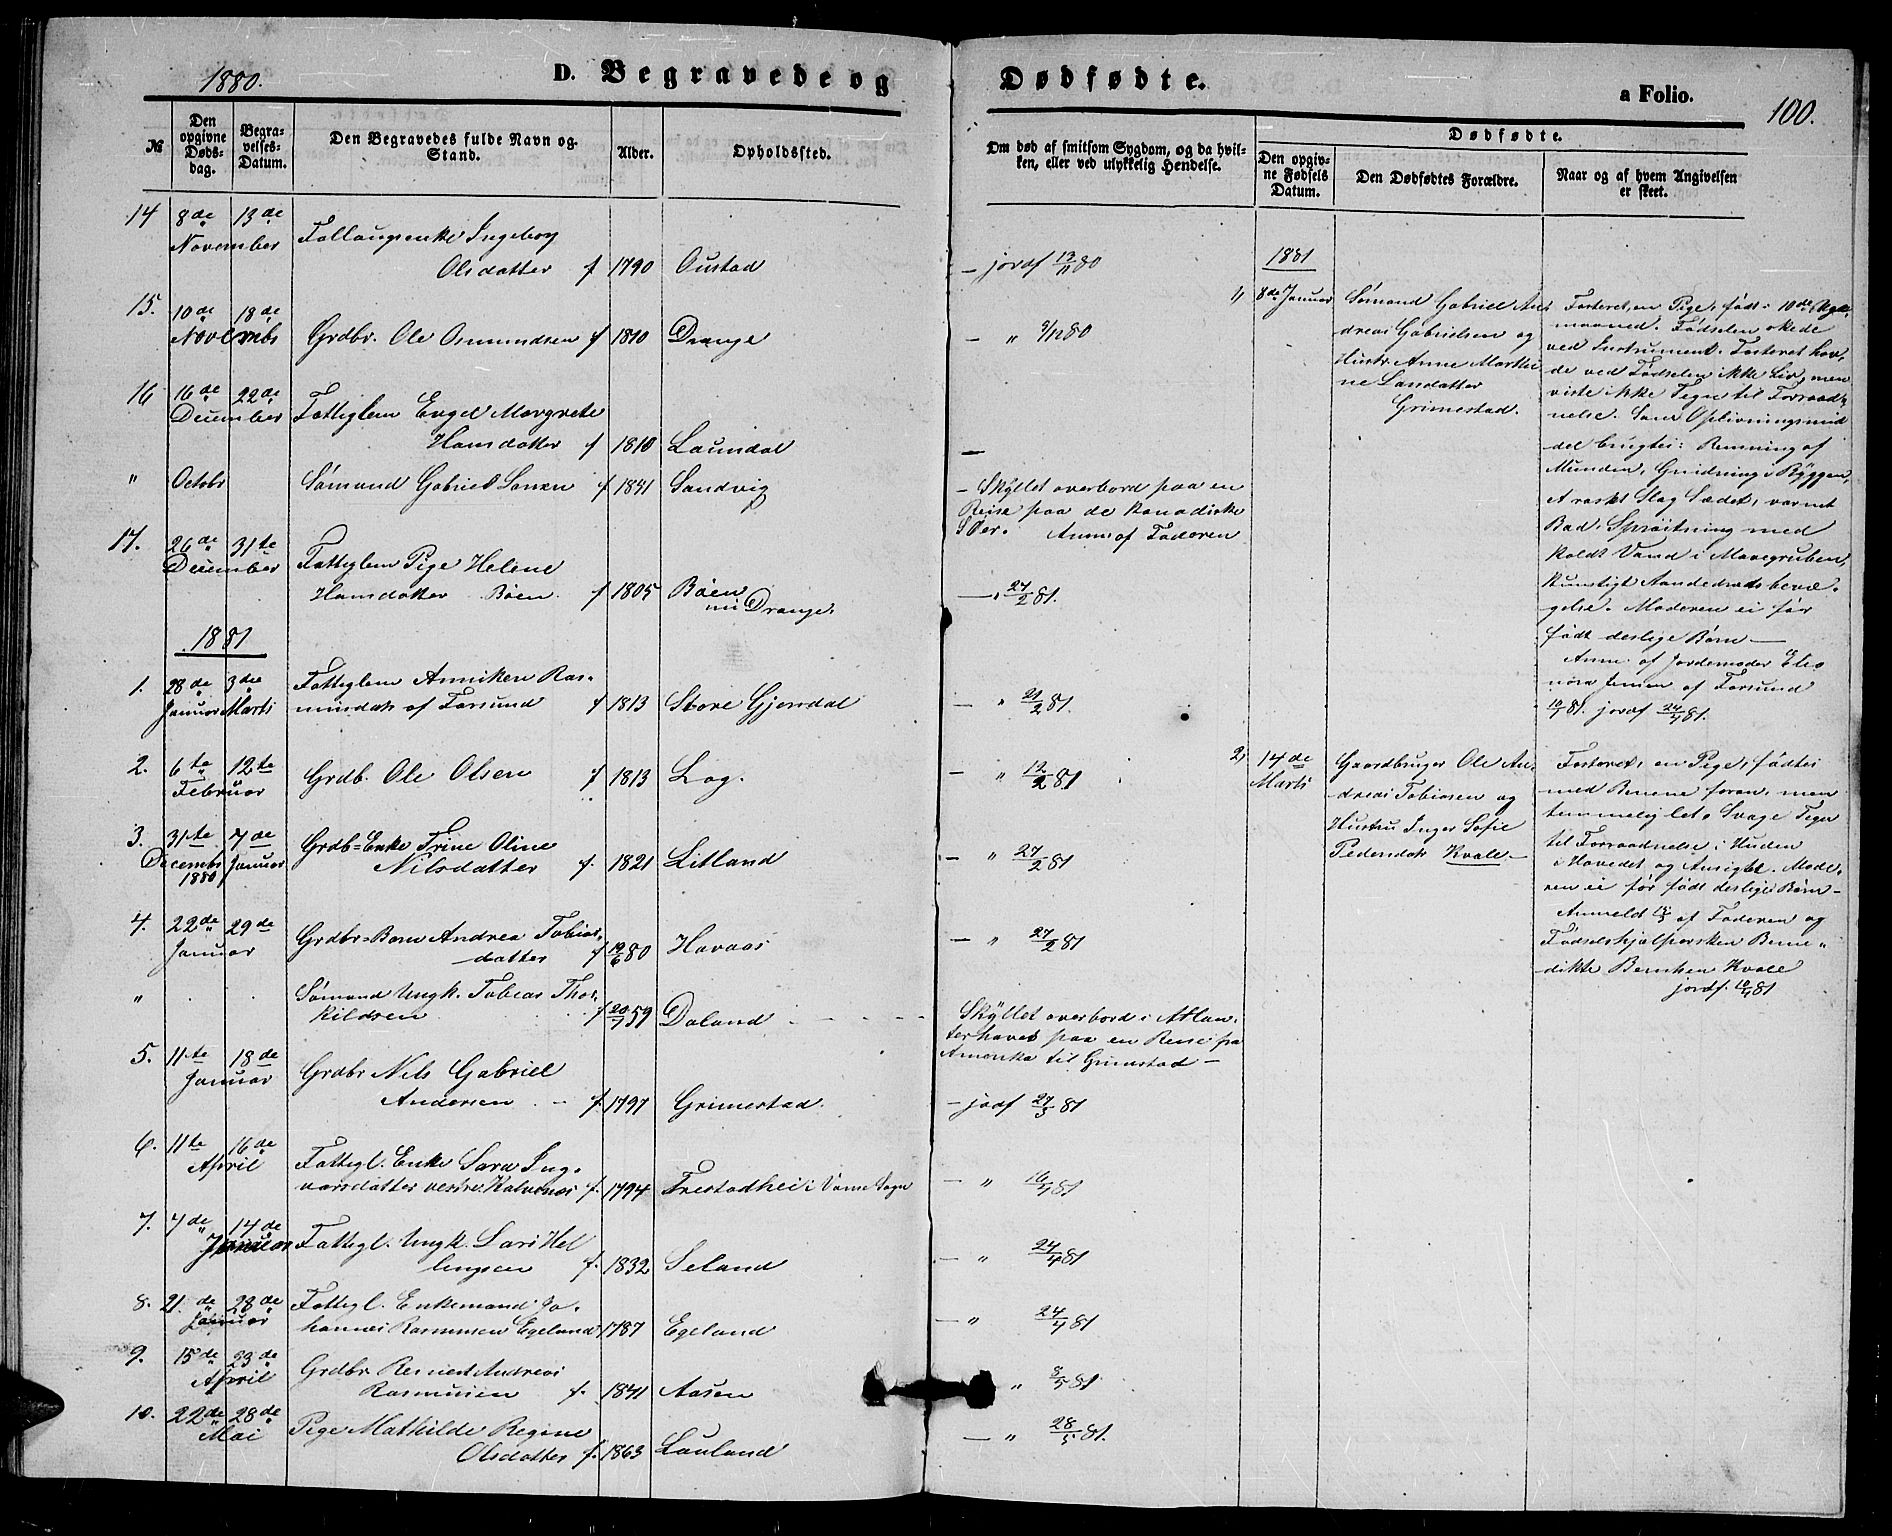 1880.
D. Begravede og Dødfødte.
a Folio.
100.
№
Den opgivne Døds-dag.
Begra-velses-Datum.
Den Begravedes fulde Navn og Stand.
Alder.
Opholdssted.
Om død af smitsom Sygdom, og da hvil-
ken, eller ved ulykkelig Hendelse.
Dødfødte.
Den opgiv-ne Fødsels Datum.
Den Dødfødtes Forældre.
Naar og af hvem Angivelsen er skeet.
14 8de 13de
November Ingeborg
Olsdatter f 1790 Oustad — jordf 13/11 80
15. 10de 18de
Novembr Grdbr. Ole Osmundsen f 1810 Drange — " 3/12 80
16 16de 22de
December Fattiglem Engel Margrete
Hansdatter f 1810 Laundal —
" Octobr Sømand Gabriel Larsen f 1841 Sandvig — Skyllet overbord paa en
Reise paa de kanadiske
Søer. Anm. af Faderen
17. 26de 31te
December Fattiglem Pige Helene
Hansdatter Bøen f 1805 Bøen
Drange. — " 27/2 81.
1881
1. 28de 3die
Januar Marts Fattiglem Anniken Ras-
musdatr af Farsund f 1813 Store Gjerdal — " 21/2 81.
2. 6te 12te
Februar Grdb. Ole Olsen f 1813 Log. — " 12/2 81
3. 31te 7de
Decembr 1880 Januar Grdb=Enke Trine Oline
Nilsdatter f. 1821 Litland — " 27/2 81
4. 22de 29de
Januar Grdbr=Barn Andrea Tobias-
datter f 19/6 80 Havaas — " 27/2 81
" Sømand Ungk. Tobias Thor-
kildsen f 20/7 59 Daland Skyllet overbord i Atlan-
terhavet paa en Reise fra
Amerika til Grimstad —
5. 11te 18de
Januar Grdbr Nils Gabriel
Andersen f. 1797 Grimestad. — jordf 27/3 81
6. 11te 16de
April Fattigl. Enke Sara Ing-
varsdatter vestre Kalvenes f. 1794 Frestadhei i Vanse Sogn — " 16/4 81
7. 4de 14de
Januar Fattigl. Ungk. Lars Hel
lingsen f. 1832 Seland — " 24/4 81
8. 21de 28de
Januar Fattigl. Enkemand Jo-
hannes Rasmussen Egeland 1787 Egeland — " 24/4 81
9. 15de 23de
April Grdbr. Bernt Andreas
Rasmussen f. 1841 Aasen " 8/5 81
10. 22de 28de
Mai Pige Mathilde Regine
Olsdatter f. 1863 Lauland — " 28/5 81.
1881
1, 8de Januar
Sømand Gabriel An-
dreas Gabrielsen og
Hustr. Anne Marthi
ne Larsdatter
Grimestad.
Fosteret, en Pige, født i 10de
maaned. Fødselen skede
ved Instrument. Fosteret hav-
de ved Fødselen ikke Liv, men
viste ikke Tegn til Forraad-
nelse. Som Oplivningsmid
del brugtes: Rensning af
Munden, Gnidning i Ryggen,
A raskt Slag Sædet, varmt
Bad, Sprøitning med
koldt Vand i Mavegruben,
kunstigt Aandedrætsbevæ-
gelse. Moderen ei før
født deslige Børn —
Anm. af Jordemoder Eleo
nora Jensen af Farsund
10/1 81. jordf 24/4 81.
2, 14de
Marts
Gaardbruger Ole An-
dreas Tobiasen og
Hustru Inger Sofie
Pedersdatr Kvale —
Fosteret, en Pige, fødtes
med Benene foran, men
temmelig let. Svage Tegn
til Forraadnelse i Huden
i Hovedet og Ansigtet. Mode-
ren ei før født deslige Børn —
Anmeldt af Faderen og
Fødselshjælpersken Bene-
dikte Berntsen Kvale
jordf. 18/4 81